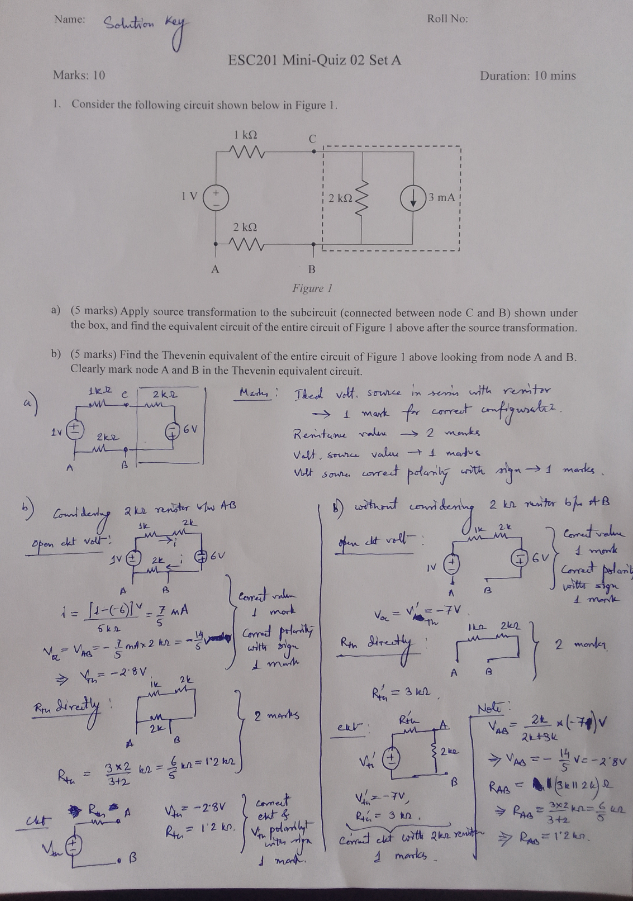 Name: Solution Key
Roll No:
ESC201 Mini-Quiz 02 Set A
Marks: 10
Duration: 10 mins
1. Consider the following circuit shown below in Figure 1.
1 kΩ
C
1 V
+
-
2 kΩ
3 mA
2 kΩ
A
B
Figure 1
a) (5 marks) Apply source transformation to the subcircuit (connected between node C and B) shown under
the box, and find the equivalent circuit of the entire circuit of Figure 1 above after the source transformation.
b) (5 marks) Find the Thevenin equivalent of the entire circuit of Figure 1 above looking from node A and B.
Clearly mark node A and B in the Thevenin equivalent circuit.
a)
1kΩ C 2kΩ
1V
6V
2kΩ
A
B
Marks: volt. source in series with resistor
→ 1 mark for correct
Resistance value → 2 marks
Volt. source value → 1 marks
Volt source correct polarity with sign → 1 marks.
b) Considering 2kΩ resistor b/w AB
Open ckt volt:
1k 2k
1V
i
6V
2k
A B
i = [1-(-6)]V / 5kΩ = 7/5 mA
Voc = VAB = - 7/5 mA x 2 kΩ = -14/5
⇒ Vth = -2.8V
Correct value
1 mark
Correct polarity
with sign
1 mark
Rth directly:
1k 2k
2k
A B
2 marks
Rth = 3x2/3+2 kΩ = 6/5 kΩ = 1.2 kΩ
ckt
Rth A
Vth
B
Vth = -2.8V
Rth = 1.2 kΩ.
correct
ckt &
Vth polarity
with sign
1 mark.
b) without considering 2 kΩ resistor b/w AB
Open ckt volt:
1k 2k
1V
6V
A B
Correct value
1 mark
Correct polarity
with sign
1 mark
Voc = V'th = -7V
Rth directly:
1kΩ 2kΩ
A B
2 marks
R'th = 3 kΩ
ckt:
R'th A
V'th
2kΩ
B
V'th = -7V,
R'th = 3 kΩ.
Correct ckt with 2kΩ resistor
1 marks.
Note:
VAB = 2k/2k+3k x (-7)V
⇒ VAB = - 14/5 V = -2.8V
RAB = (3k || 2k) Ω
⇒ RAB = 3x2/3+2 kΩ = 6/5 kΩ
⇒ RAB = 1.2kΩ.